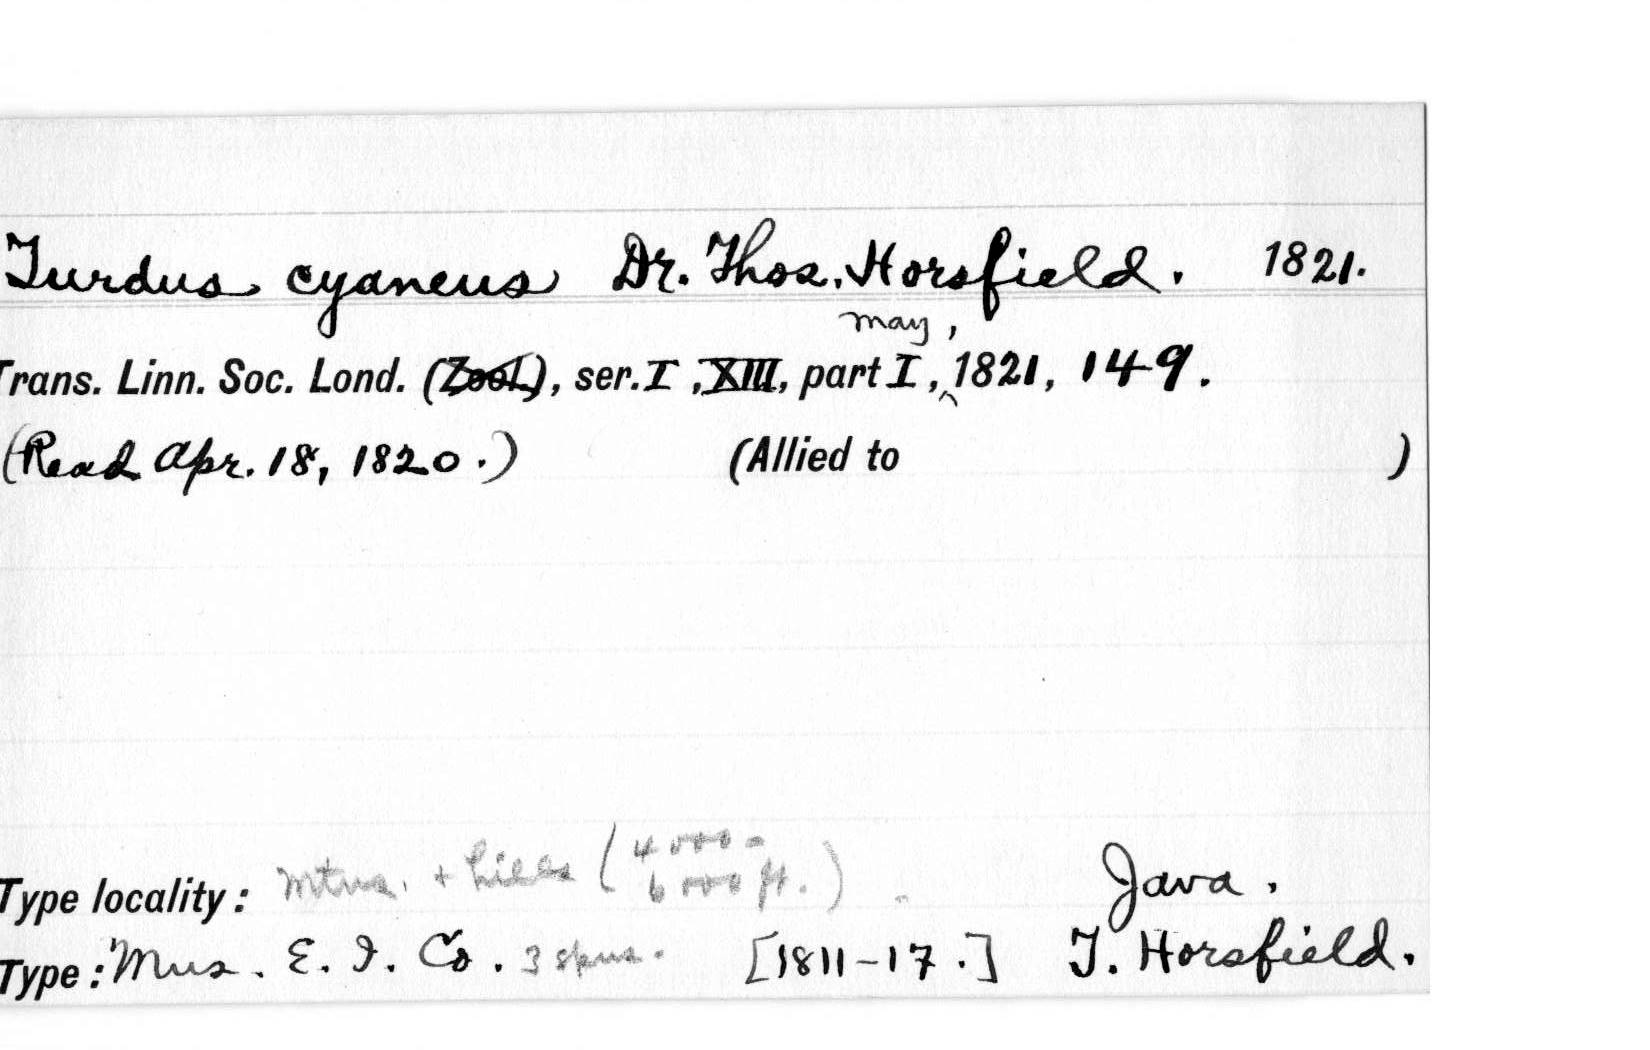 Turdus cyaneus Dr. Thos. Horsfield. 1821.
Trans. Linn. Soc. Lond. (Zool.), ser. I, XIII, part I, May, 1821, 149.
(Read Apr. 18, 1820.) (Allied to )
Type locality: Mtns. + hills (4000-6000 ft.) Java.
Type: Mus. E. I. Co. 3 spns. [1811-17.] T. Horsfield.